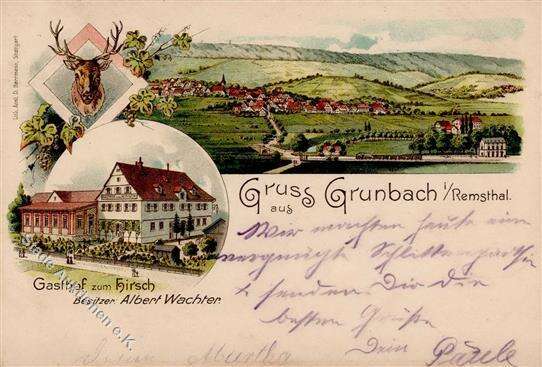 Lith. Anst. D. Herrmann, Stuttgart
Gruss aus Grunbach i/Remsthal.
Gasthof zum Hirsch
Besitzer Albert Wachter.
Wir machten heute eine
vergnügte Schlittenpartie
& senden Dir die
besten Grüße
Dein Paule
Martha